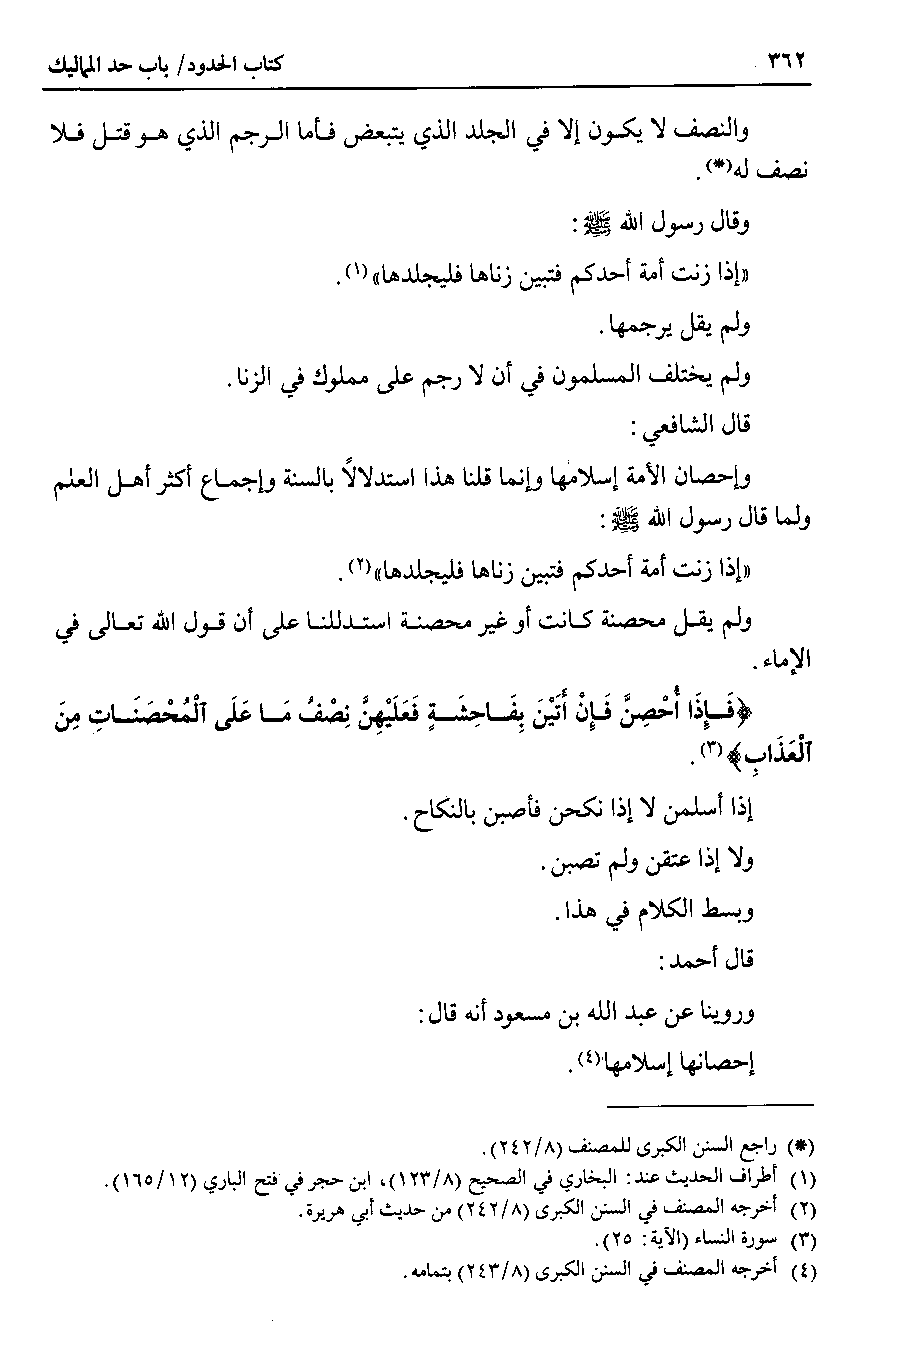 ٣٦٢ كتاب الحدود/ باب حد المماليك
والنصف لا يكون إلا في الجلد الذي يتبعض فأما الرجم الذي هو قتل فلا
نصف له(*).
وقال رسول الله ﷺ :
«إذا زنت أمة أحدكم فتبين زناها فليجلدها»(١).
ولم يقل يرجمها.
ولم يختلف المسلمون في أن لا رجم على مملوك في الزنا.
قال الشافعي :
وإحصان الأمة إسلامها وإنما قلنا هذا استدلالاً بالسنة وإجماع أكثر أهل العلم
ولما قال رسول الله ﷺ :
«إذا زنت أمة أحدكم فتبين زناها فليجلدها»(٢).
ولم يقل محصنة كانت أو غير محصنة استدللنا على أن قول الله تعالى في
الإماء.
﴿فَإِذَا أُحْصِنَّ فَإِنْ أَتَيْنَ بِفَاحِشَةٍ فَعَلَيْهِنَّ نِصْفُ مَا عَلَى ٱلْمُحْصَنَاتِ مِنَ
ٱلْعَذَابِ﴾(٣).
إذا أسلمن لا إذا نكحن فأصبن بالنكاح.
ولا إذا عتقن ولم تصبن.
وبسط الكلام في هذا.
قال أحمد :
وروينا عن عبد الله بن مسعود أنه قال :
إحصانها إسلامها(٤).
(*) راجع السنن الكبرى للمصنف (٢٤٢/٨).
(١) أطراف الحديث عند : البخاري في الصحيح (١٢٣/٨)، ابن حجر في فتح الباري (١٦٥/١٢).
(٢) أخرجه المصنف في السنن الكبرى (٢٤٢/٨) من حديث أبي هريرة.
(٣) سورة النساء (الآية : ٢٥).
(٤) أخرجه المصنف في السنن الكبرى (٢٤٣/٨) بتمامه.